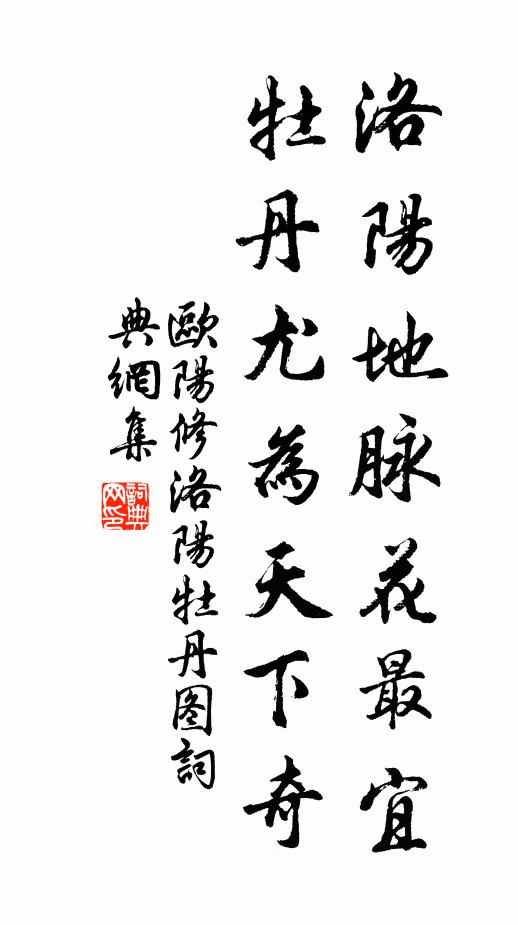 洛陽地脉花最宜
牡丹尤為天下奇
歐陽修洛陽牡丹图詞
典網集
詞典网印